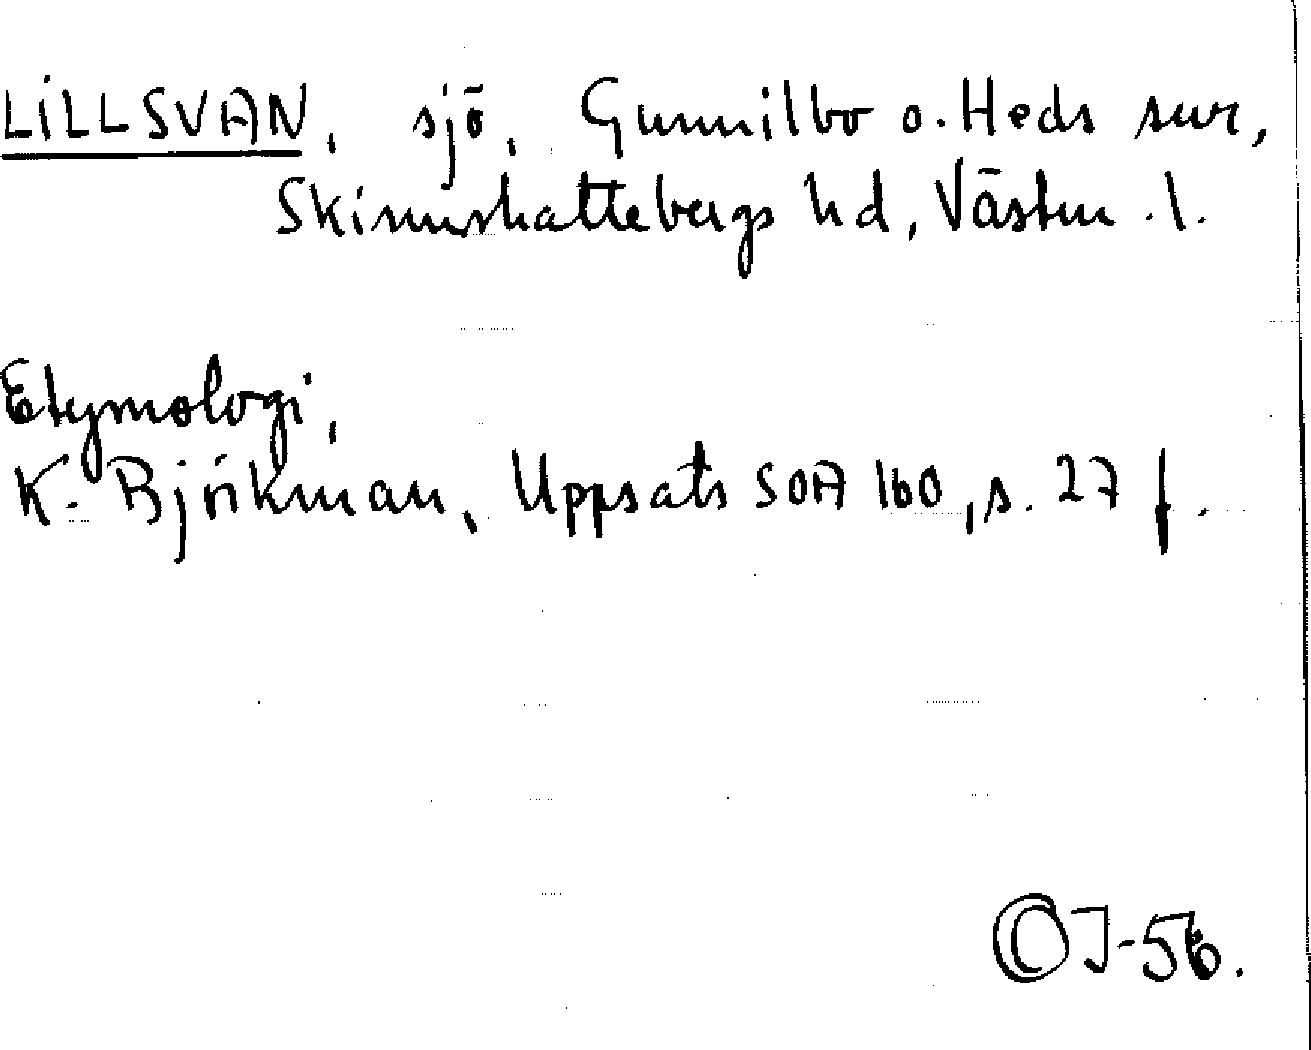 LILLSVAN, sjö, Gunnilbo o. Heds snr,
Skinnskattebergs hd, Västm. l.
Etymologi,
K. Björkman, Uppsats SOA 160, s. 27 f.
OJ-56.